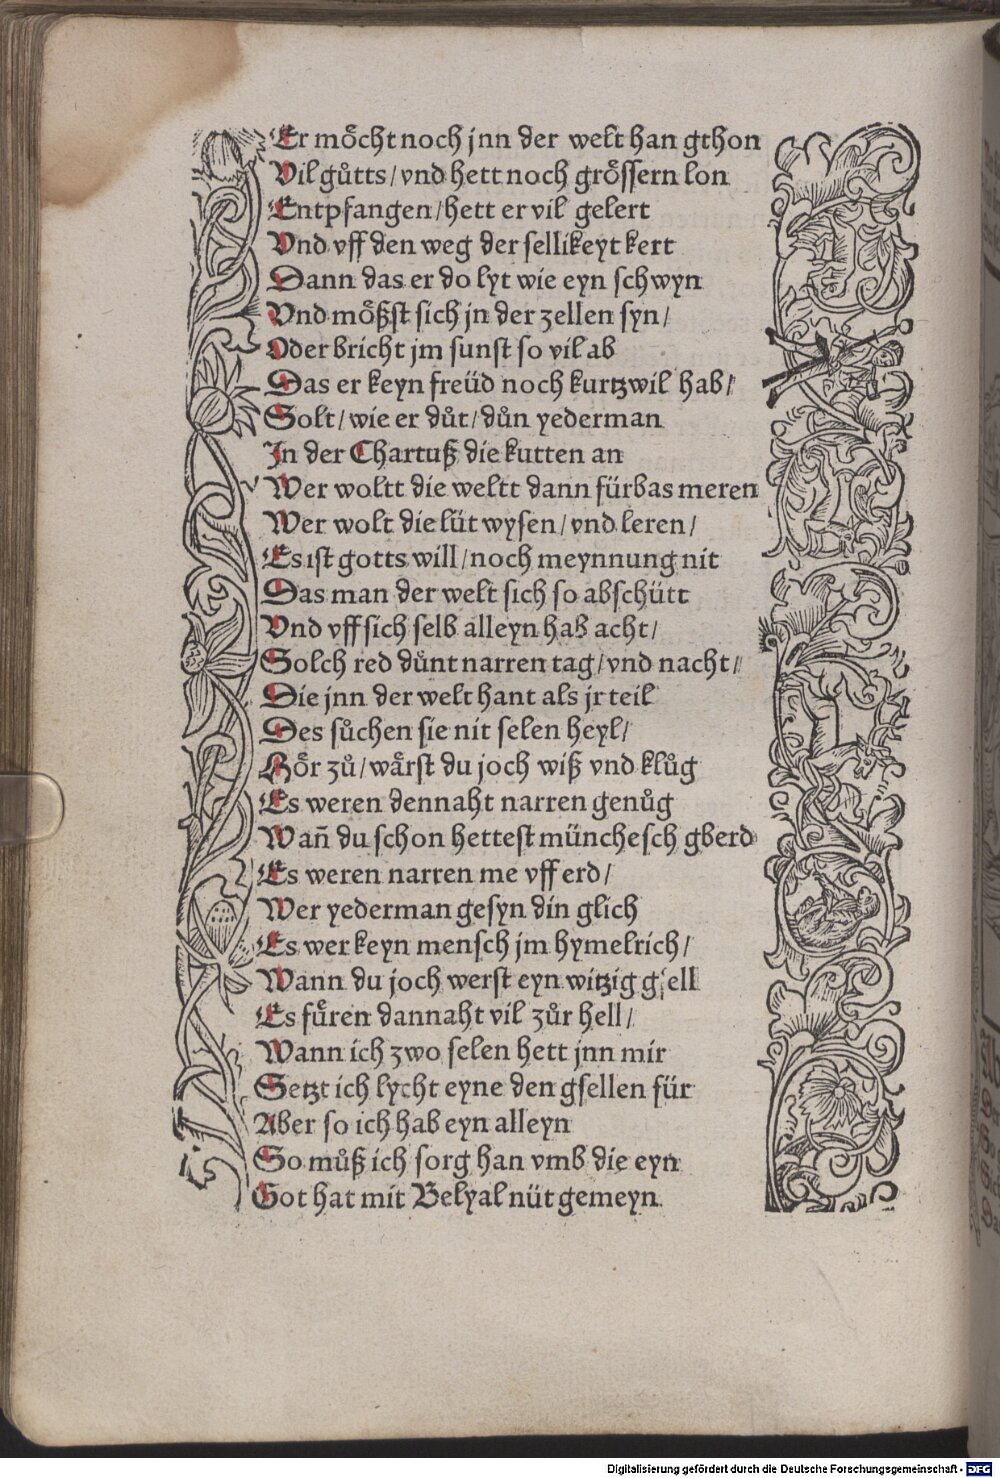 Er moͤcht noch jnn der welt han gthon
Vil guͦtts / vnd hett noch groͤſſern lon
Entpfangen / hett er vil gelert
Vnd vff den weg der sellikeyt kert
Dann das er do lyt wie eyn schwyn
Vnd moͤßst sich jn der zellen syn /
Oder bricht jm sunst so vil ab
Das er keyn freüd noch kurtzwil hab /
Solt / wie er duͦt / duͦn yederman
In der Chartuß die kutten an
Wer woltt die weltt dann fürbas meren
Wer wolt die lüt wysen / vnd leren /
Es ist gotts will / noch meynnung nit
Das man der welt sich so abschütt
Vnd vff sich selb alleyn hab acht /
Solch red duͦnt narren tag / vnd nacht /
Die jnn der welt hant als jr teil
Des suͦchen sie nit selen heyl /
Hoͤr zuͦ / waͤrst du joch wiß vnd kluͦg
Es weren dennaht narren genuͦg
Wan̄ du schon hettest münchesch gberd
Es weren narren me vff erd /
Wer yederman gesyn din glich
Es wer keyn mensch jm hymelrich /
Wann du joch werst eyn witzig gsell
Es fuͤren dannaht vil zuͦr hell /
Wann ich zwo selen hett jnn mir
Setzt ich lycht eyne den gsellen für
Aber so ich hab eyn alleyn
So muͦß ich sorg han vmb die eyn
Got hat mit Belyal nüt gemeyn.
Digitalisierung gefördert durch die Deutsche Forschungsgemeinschaft - DFG